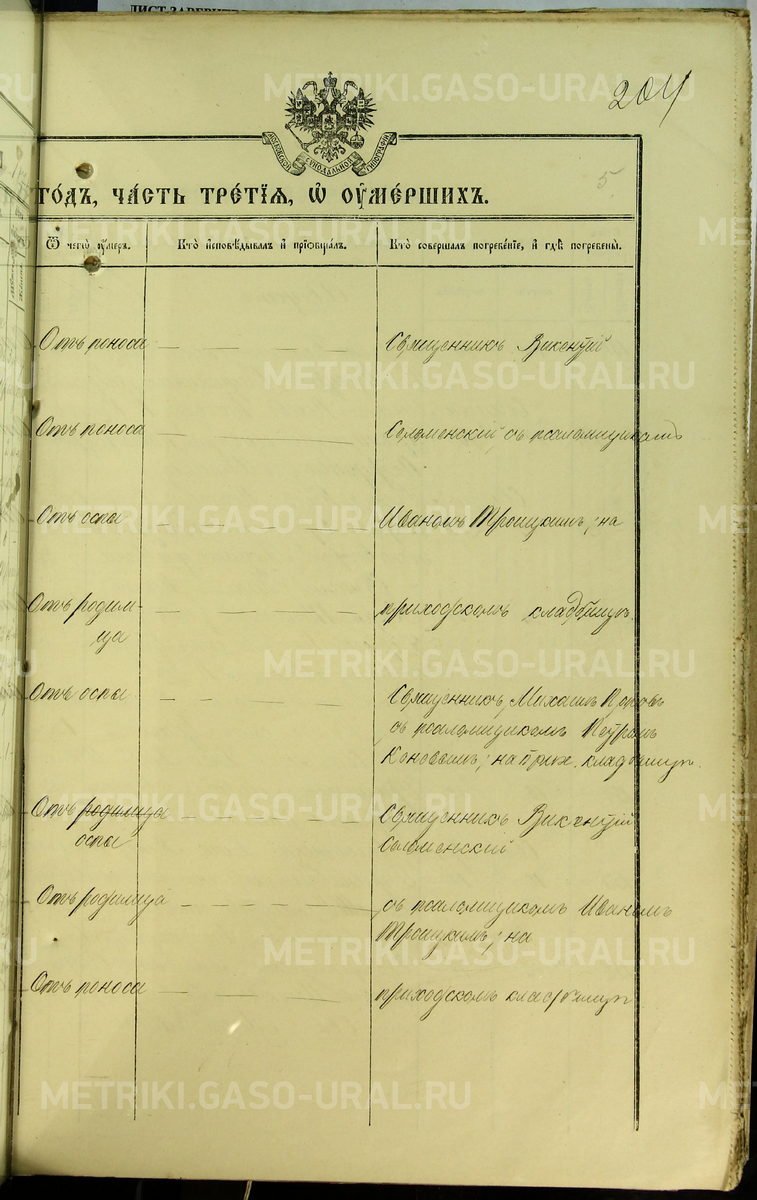 ЛИСТ ЗАВЕРИТЕ
204
МОСКОВСКОЙ СѴНОДАЛЬНОЙ ТИПОГРАФІИ
5
ГО́ДЪ, ЧА́СТЬ ТРЕ́ТІѦ, Ѡ҆ ОУ҆МЕ́РШИХЪ.
Ѿ чегѡ̀ ᲂу҆́меръ.
Кто̀ и҆сповѣ́дывалъ и҆ прїѡбща́лъ.
Кто̀ соверша́лъ погребе́нїе, и҆ гдѣ̀ погребены̀.
Отъ поноса
Священникъ Викентій
Отъ поноса
Соломенскій съ псаломщикомъ
Отъ оспы
Иваномъ Троицкимъ; на
Отъ родим-
ца
приходскомъ кладбищѣ.
Отъ оспы
Священникъ Михаилъ Поповъ
съ псаломщикомъ Петромъ
на прих. кладбищѣ.
Отъ родимца
оспы
Священникъ Викентій
Соломенскій
Отъ родимца
съ псаломщикомъ Иваномъ
Троицкимъ; на
Отъ поноса
приходскомъ кладбищѣ
METRIKI.GASO-URAL.RU